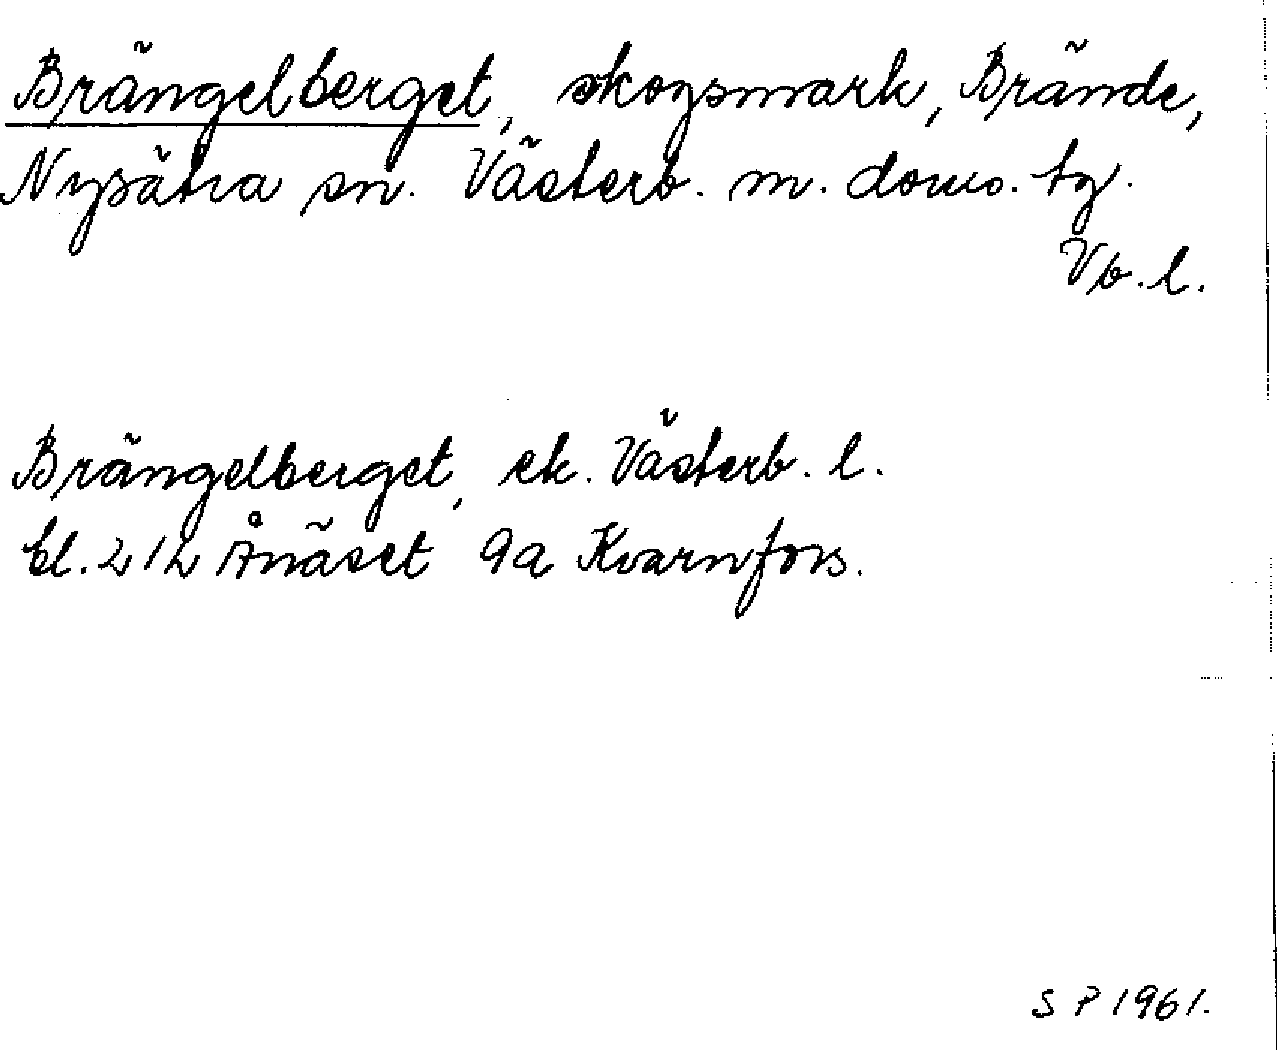 Brängelberget, skogsmark, Brände,
Nysätra sn. Västerb. m. doms. tg.
Vb. l.
Brängelberget, ek. Västerb. l.
bl. 212 Ånäset 9a Kvarnfors.
S P 1961.